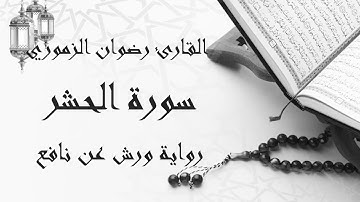 القارئ رضوان الزموري
سورة الحشر
رواية ورش عن نافع